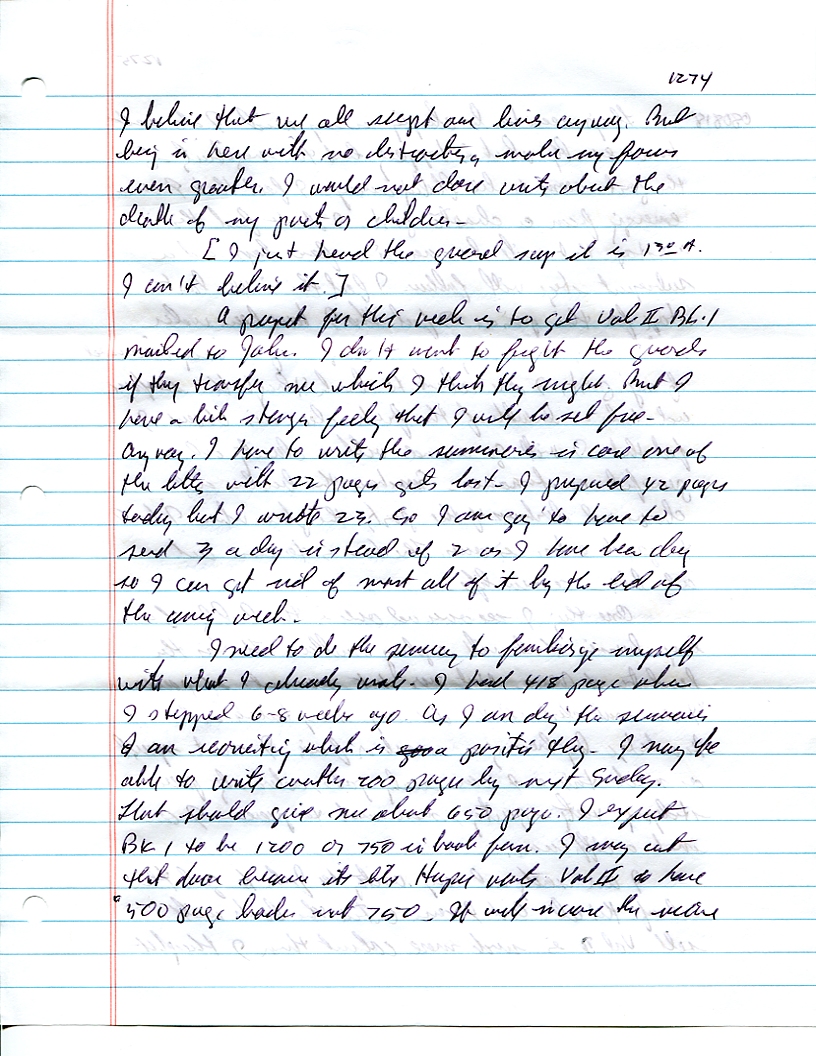 1274
I believe that we all script our lives anyway. But
being in here with no distractions makes my focus
even greater. I would not dare write about the
death of my parents or children -
[I just heard the guard say it is 130 A.
I can't believe it.]
A project for this week is to get Vol II Bk. 1
mailed to John. I don't want to fight the guards
if they transfer me which I think they might. But I
have a strange feeling that I will be set free -
Anyway. I have to write the summaries in case one of
the letters with 22 pages gets lost - I prepared 42 pages
today but I wrote 23. So I am going to have to
send 3 a day instead of 2 as I have been doing
so I can get rid of most all of it by the end of
the coming week -
I need to do the summary to familiarize myself
with what I already wrote. I had 418 pages when
I stopped 6-8 weeks ago. As I am doing the summaries
I am rewriting which is a positive thing - I may be
able to write another 200 pages by next Sunday.
That should give me about 650 pages. I expect
BK 1 to be 1200 or 750 in book form. I may cut
that down because Harper wants Vol II to have
500 page books not 750. It will increase the